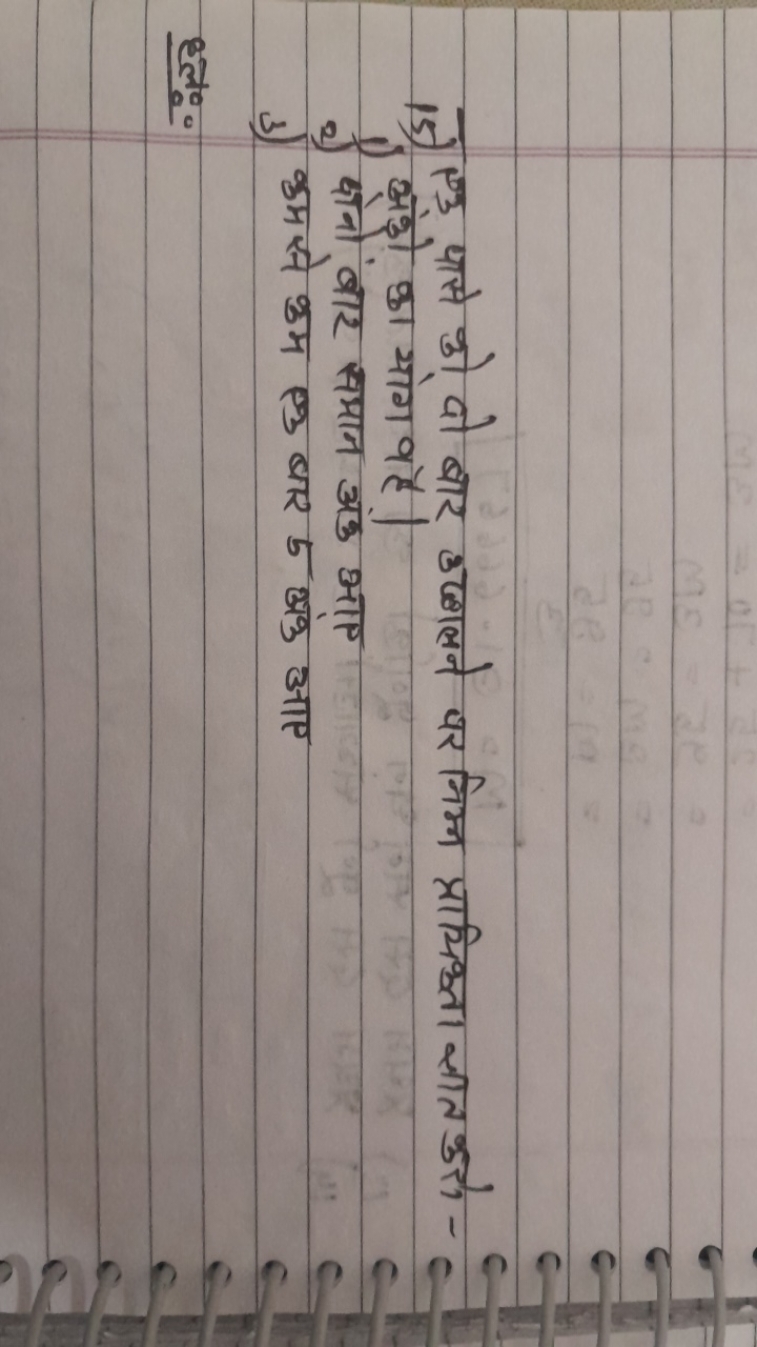 15) एक पासे को दो बार उछालने पर निम्न प्रायिकता ज्ञात करो -
1) अंको का योग 9 हैं।
2) दोनों बार समान अंक आए
3) कम से कम एक बार 5 अंक आए
हल: